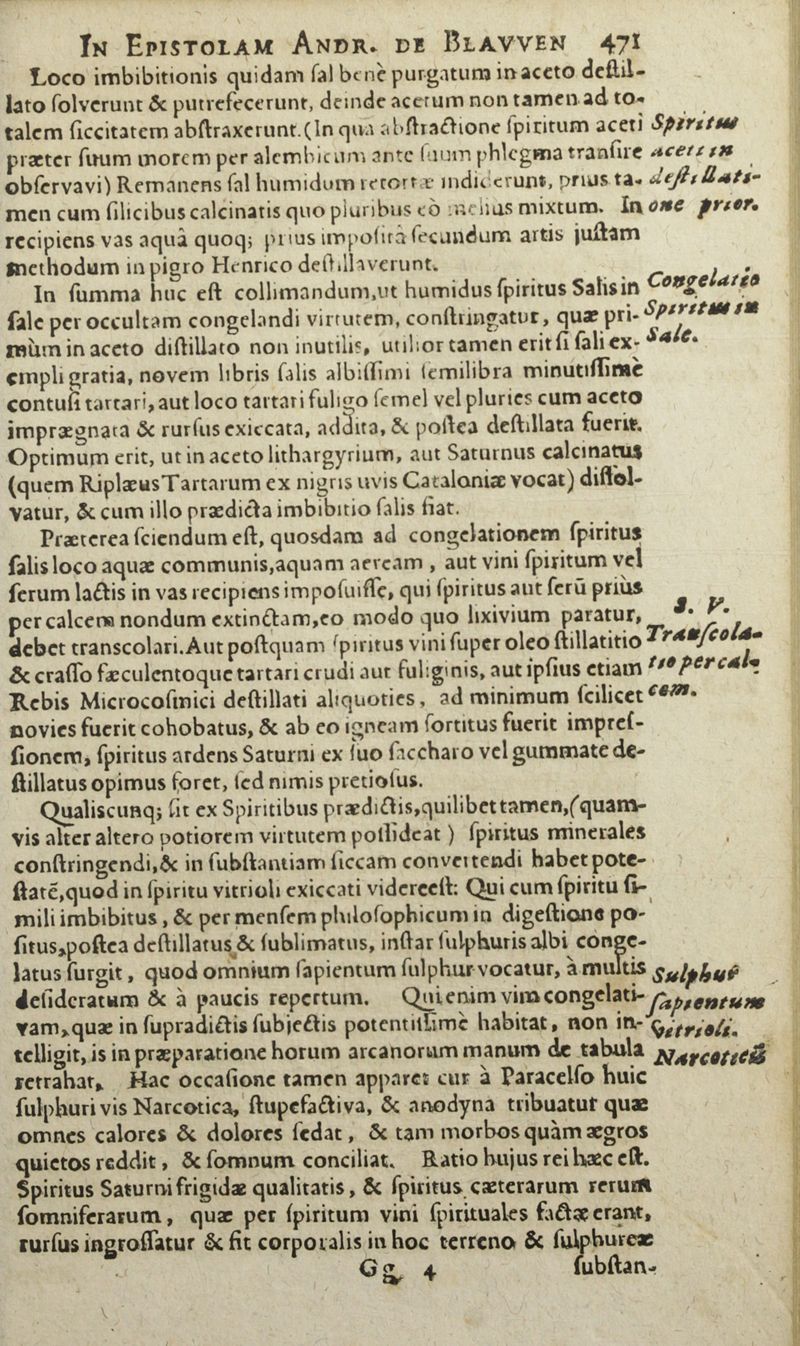 IN EPISTOLAM ANDR. DE BLAVVEN 471
Loco imbibitionis quidam ſal benè purgatum in aceto deſtil-
lato ſolverunt & putrefecerunt, deinde acetum non tamen ad to-
talem ſiccitatem abſtraxerunt. (In qua abſtractione ſpiritum aceti
præter ſuum morem per alembicum ante ſuum phlegma tranſire
obſervavi) Remanens ſal humidum retortæ indiderunt, prius ta-
men cum ſilicibus calcinatis quo pluribus eò melius mixtum. In
recipiens vas aquâ quoq; prius impoſitâ ſecundum artis juſtam
methodum in pigro Henrico deſtillaverunt.
Spiritus
aceti in
deſtillati-
one prior.
In ſumma huc eſt collimandum, ut humidus ſpiritus Salis in
ſale per occultam congelandi virtutem, conſtringatur, quæ pri-
mùm in aceto diſtillato non inutilis, utilior tamen erit ſi ſali ex-
empli gratia, novem libris ſalis albiſſimi ſemilibra minutiſſimè
contuſi tartari, aut loco tartari fuligo ſemel vel pluries cum aceto
imprægnata & rurſus exiccata, addita, & poſtea deſtillata fuerit.
Optimum erit, ut in aceto lithargyrium, aut Saturnus calcinatus
(quem Riplæus Tartarum ex nigris uvis Cataloniæ vocat) diſſol-
vatur, & cum illo prædicta imbibitio ſalis fiat.
Congelatio
Spiritus in
Sale.
Præterea ſciendum eſt, quosdam ad congelationem ſpiritus
ſalis loco aquæ communis, aquam aeream, aut vini ſpiritum vel
ſerum lactis in vas recipiens impoſuiſſe, qui ſpiritus aut ſerū priùs
per calcem nondum extinctam, eo modo quo lixivium paratur,
debet transcolari. Aut poſtquam ſpiritus vini ſuper oleo ſtillatitio
& craſſo fæculentoque tartari crudi aut fuliginis, aut ipſius etiam
Rebis Microcoſmici deſtillati aliquoties, ad minimum ſcilicet
novies fuerit cohobatus, & ab eo igneam ſortitus fuerit impreſ-
ſionem, ſpiritus ardens Saturni ex ſuo ſaccharo vel gummate de-
ſtillatus opimus foret, ſed nimis pretioſus.
S. V.
Tranſcola-
tio per cal-
cem.
Qualiscunq; ſit ex Spiritibus prædictis, quilibet tamen, (quam-
vis alter altero potiorem virtutem poſſideat) ſpiritus minerales
conſtringendi, & in ſubſtantiam ſiccam convertendi habet pote-
ſtatē, quod in ſpiritu vitrioli exiccati videre eſt: Qui cum ſpiritu ſi-
mili imbibitus, & per menſem philoſophicum in digeſtione po-
ſitus, poſtea deſtillatus & ſublimatus, inſtar ſulphuris albi conge-
latus ſurgit, quod omnium ſapientum ſulphur vocatur, à multis
deſideratum & à paucis repertum. Qui enim vim congelati-
vam, quæ in ſupradictis ſubjectis potentiſſimè habitat, non in-
telligit, is in præparatione horum arcanorum manum de tabula
retrahat. Hac occaſione tamen apparet cur à Paracelſo huic
ſulphuri vis Narcotica, ſtupefactiva, & anodyna tribuatur quæ
omnes calores & dolores ſedat, & tam morbos quàm ægros
quietos reddit, & ſomnum conciliat. Ratio hujus rei hæc eſt.
Spiritus Saturni frigidæ qualitatis, & ſpiritus cæterarum rerum
ſomniferarum, quæ per ſpiritum vini ſpirituales factæ erant,
rurſus ingroſſatur & fit corporalis in hoc terreno & ſulphureæ
Sulphur
ſapientum
Vitrioli.
Gg 4 ſubſtan-